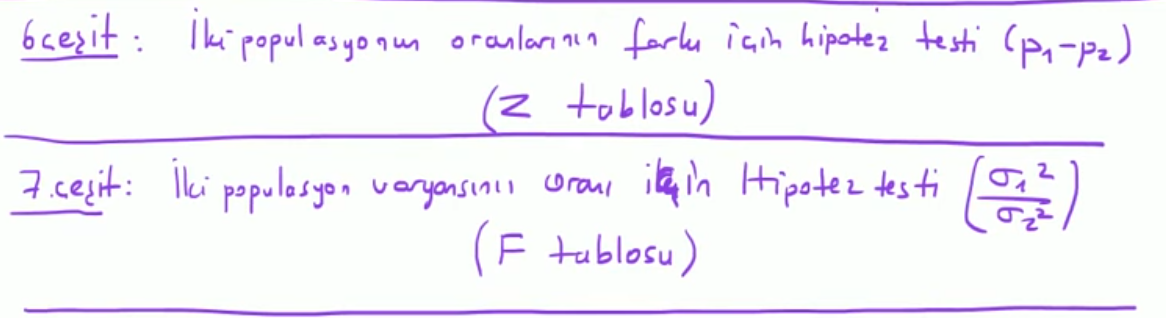 6 çeşit : İki populasyonun oranlarının farkı için hipotez testi (p₁-p₂)
(Z tablosu)
7. çeşit : İki populasyon varyansının oranı için Hipotez testi (σ₁²/σ₂²)
(F tablosu)